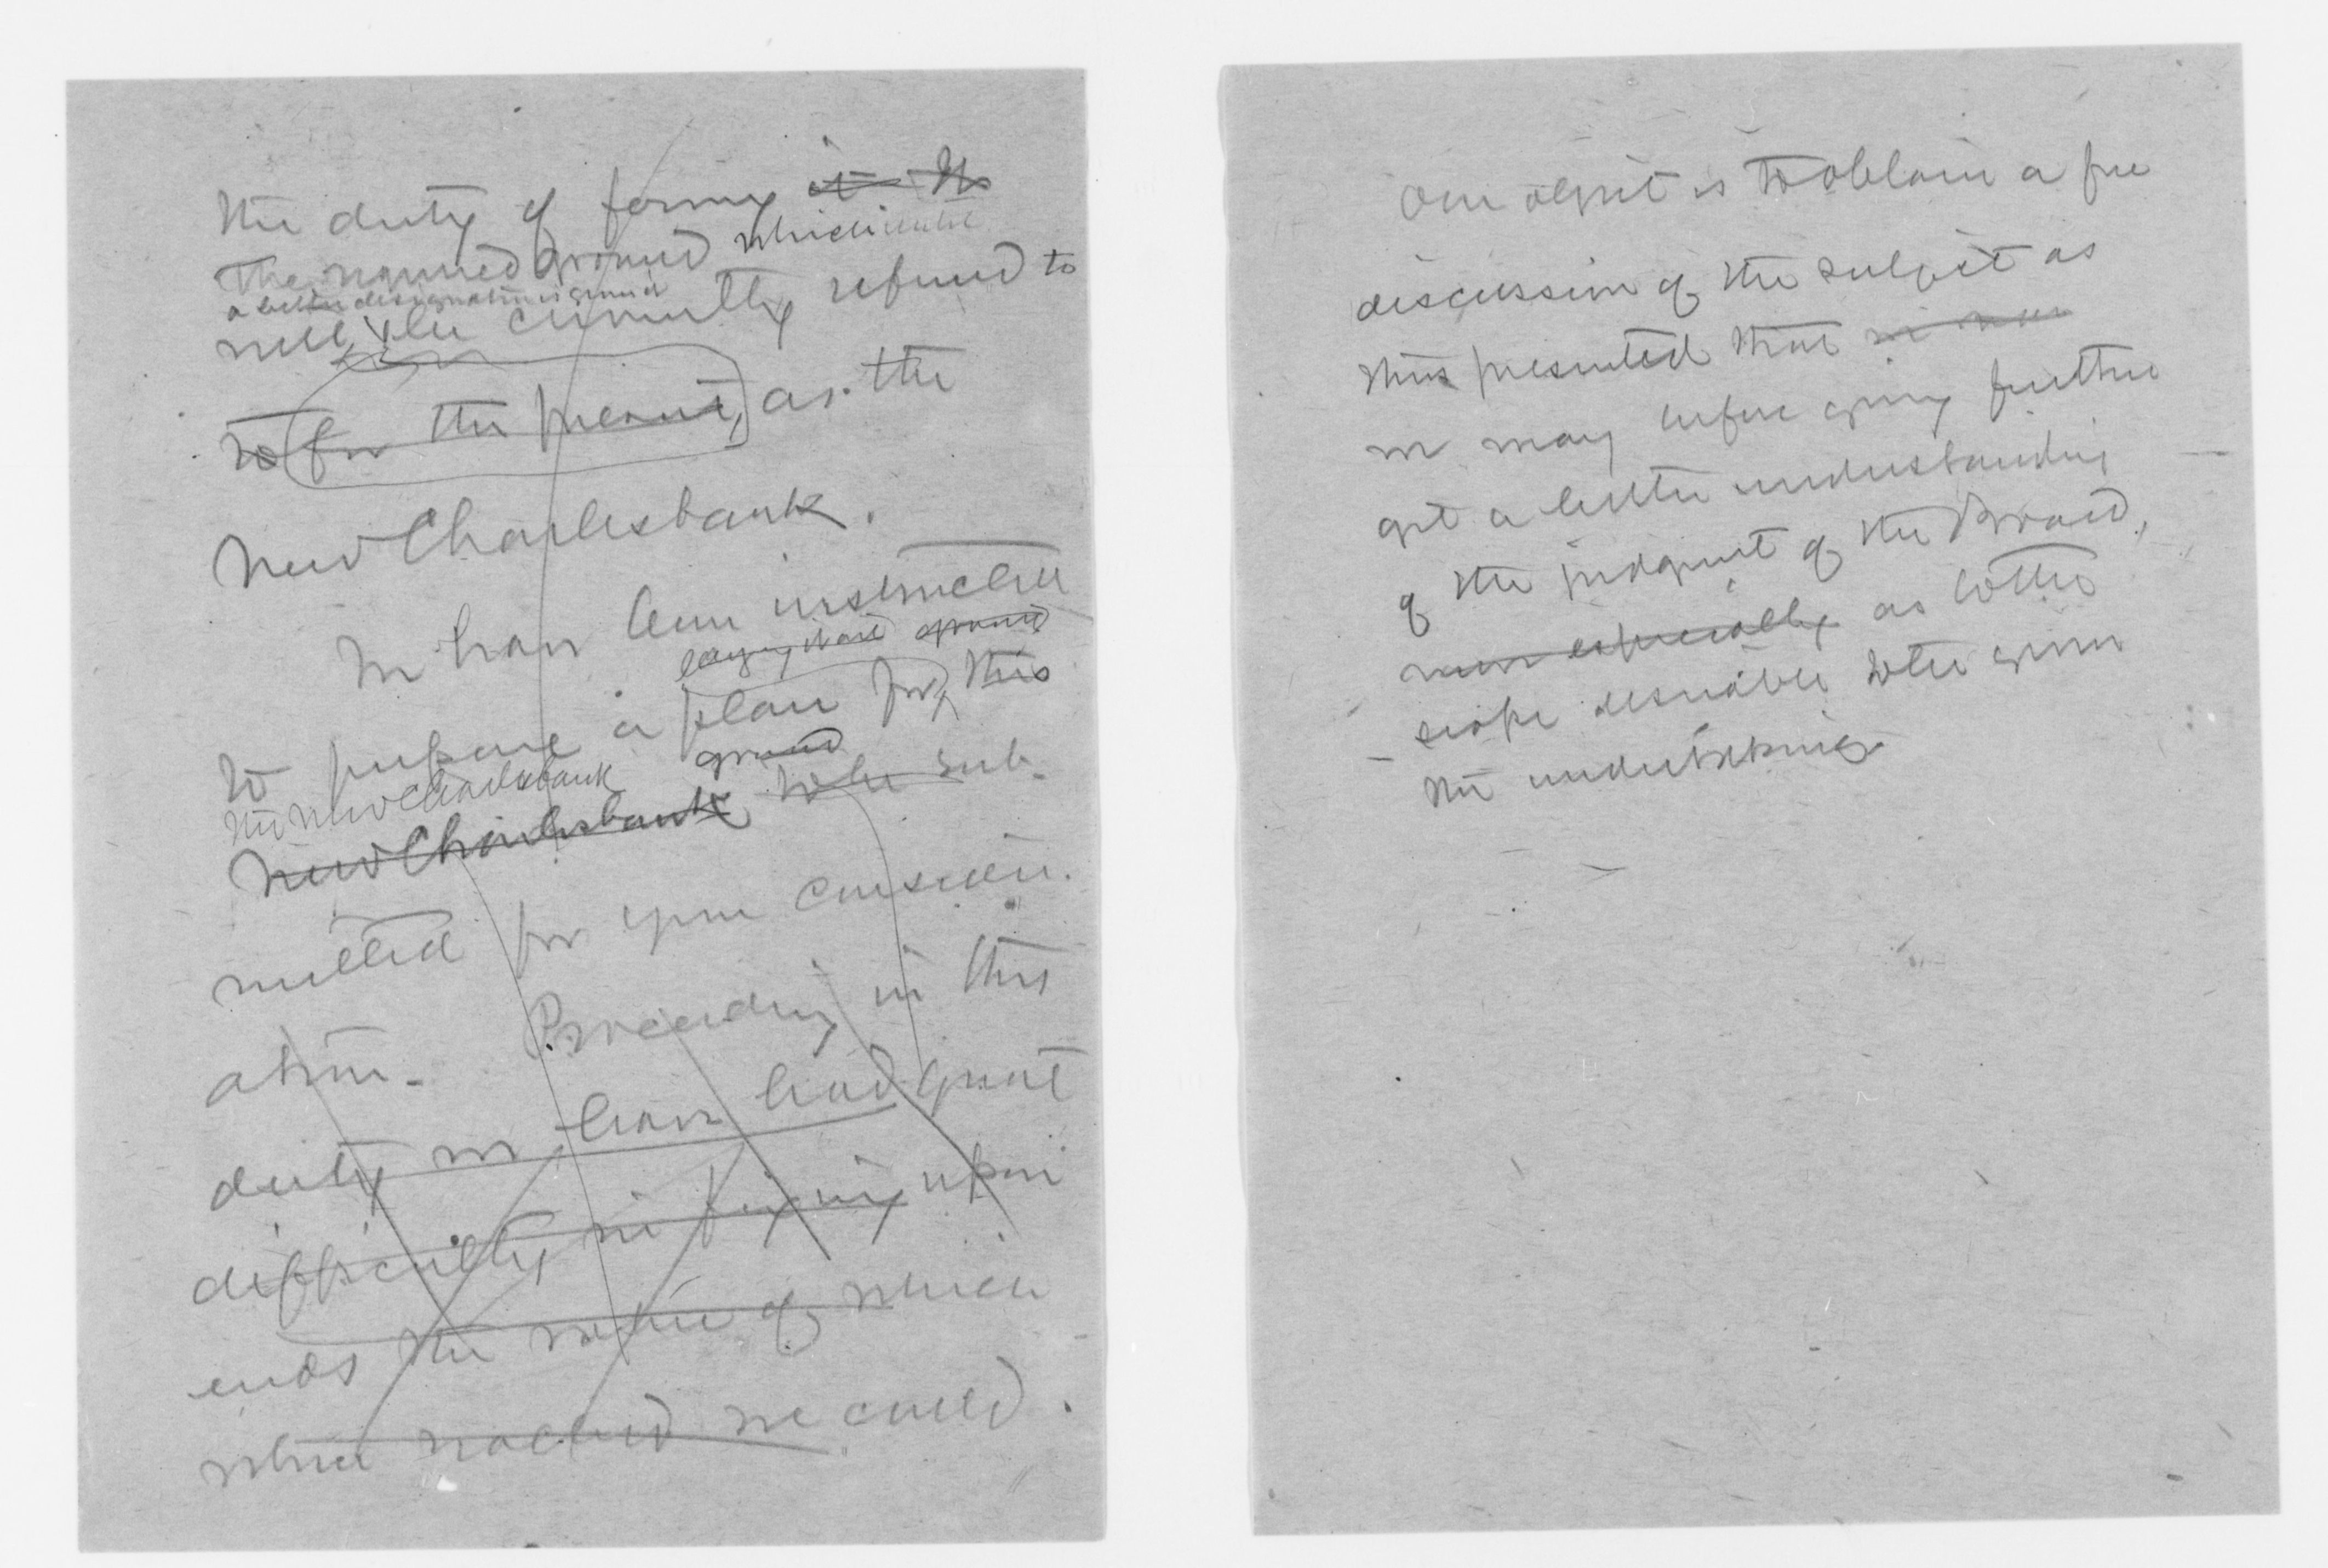 the duty of forming it. The
The required ground which until
a better designation is found
will be currently referred to
to for the present, as. the
New Charlesbank.
We have been instructed
laying out ground
to prepare a plan for this
ground
the New Charlesbank
New Charlesbank to be sub-
mitted for your consider-
ation. Proceeding in this
duty we have had great
difficulty in fixing upon
ends the value of which
which reached we could.
Our object is to obtain a free
discussion of the subject as
thus presented that we may
we may before going further
get a better understanding
of the judgment of the Board,
more especially as to the
scope desirable to be given
the undertaking